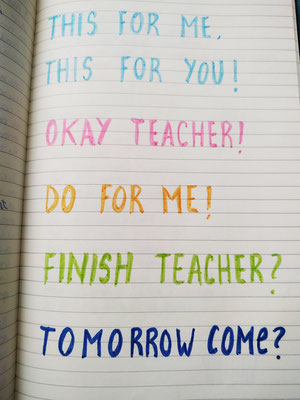 THIS FOR ME,
THIS FOR YOU!
OKAY TEACHER!
DO FOR ME!
FINISH TEACHER?
TOMORROW COME?